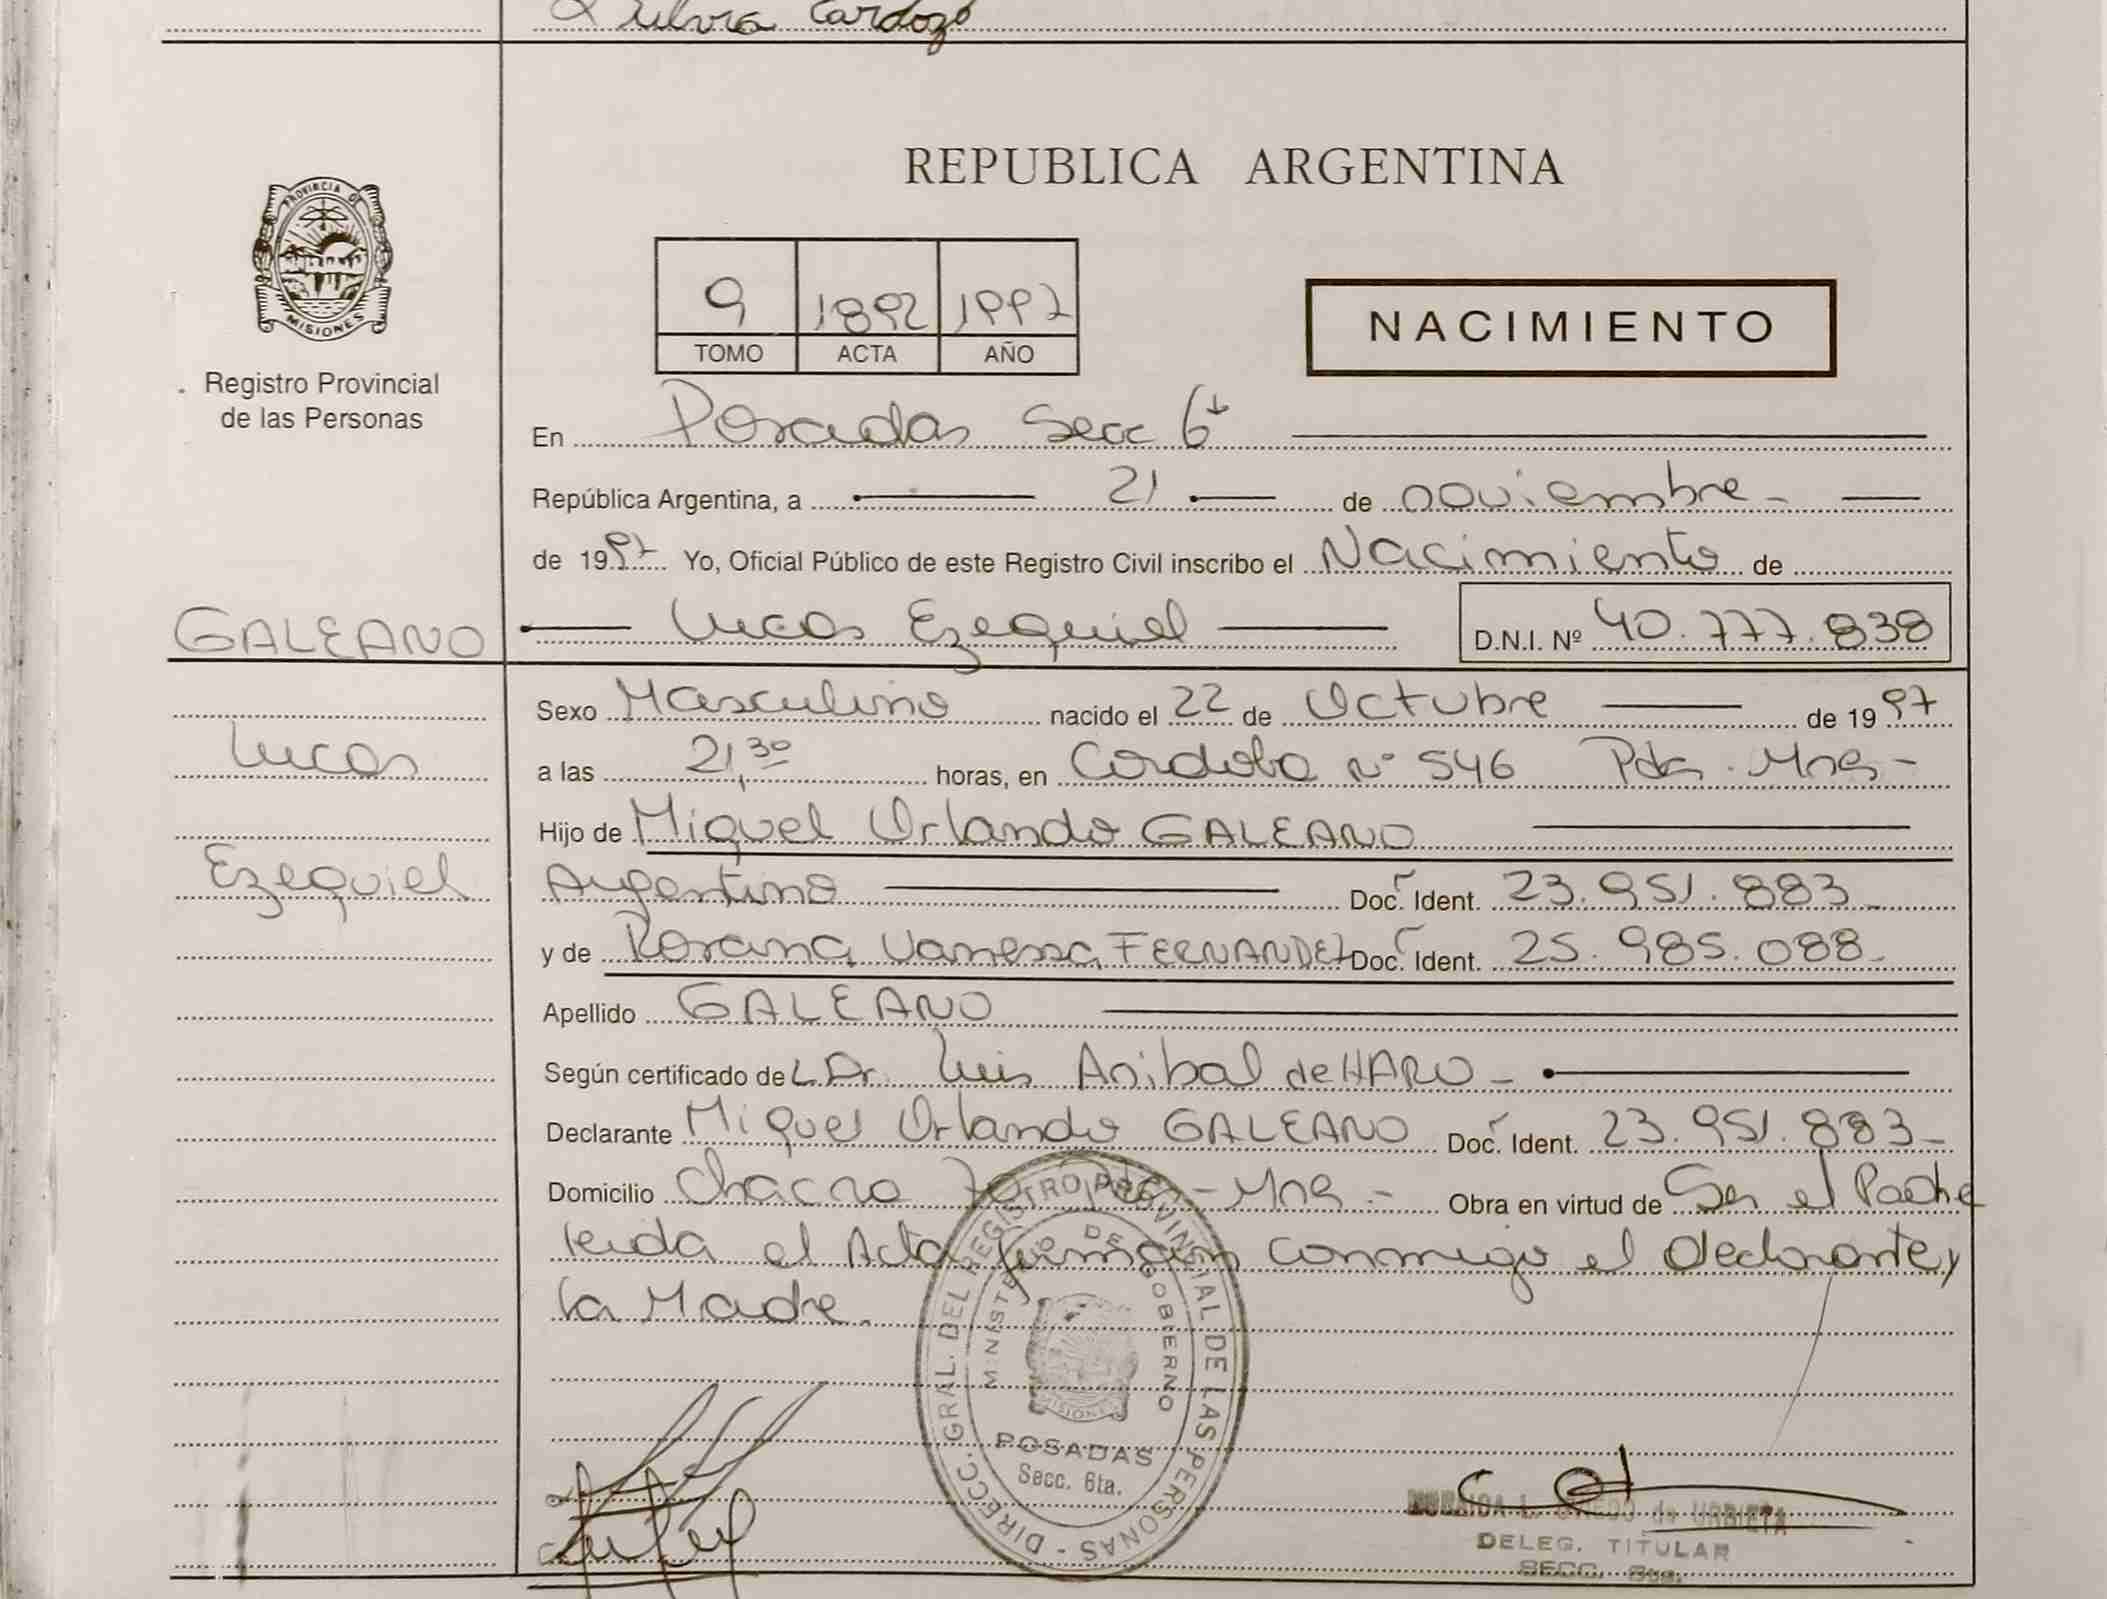 Silvia Cardozo
PROVINCIA DE
MISIONES
Registro Provincial
de las Personas
REPUBLICA ARGENTINA
9 1892 1997
TOMO ACTA AÑO
NACIMIENTO
En Posadas Secc 6ª
República Argentina, a 21 de noviembre
de 1997 Yo, Oficial Público de este Registro Civil inscribo el Nacimiento de
GALEANO Lucas Ezequiel D.N.I. Nº 40.777.838
Sexo Masculino nacido el 22 de Octubre de 1997
Lucas
a las 21,30 horas, en Cordoba Nº 546 Pdas. Mnes-
Hijo de Miguel Orlando GALEANO
Ezequiel
Argentino Doc. Ident. 23.951.883-
y de Rosana Vanessa FERNANDEZ Doc. Ident. 25.985.088-
Apellido GALEANO
Según certificado de L Dr. Luis Anibal de HARO -
Declarante Miguel Orlando GALEANO Doc. Ident. 23.951.883-
Domicilio Chacra 70 Pdas - Mnes.- Obra en virtud de Ser el Padre
leida el Acta firman conmigo el declarante y
la Madre.
DIRECC. GRAL. DEL REGISTRO PROVINCIAL DE LAS PERSONAS -
MINISTERIO DE GOBIERNO
MISIONES
POSADAS
Secc. 6ta.
L. OVIEDO de URBIETA
DELEG. TITULAR
SECC. 6ta.